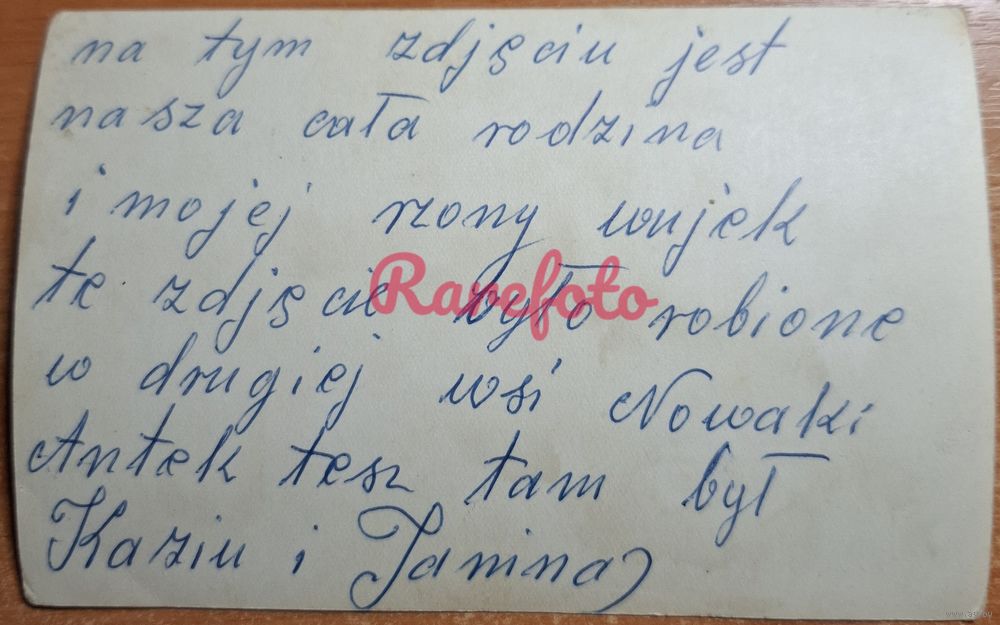 na tym zdjęciu jest
nasza cała rodzina
i mojej rzony wujek
te zdjęcie było robione
Rarefoto
w drugiej wsi Nowaki
Antek tesz tam był
Kaziu i Janina